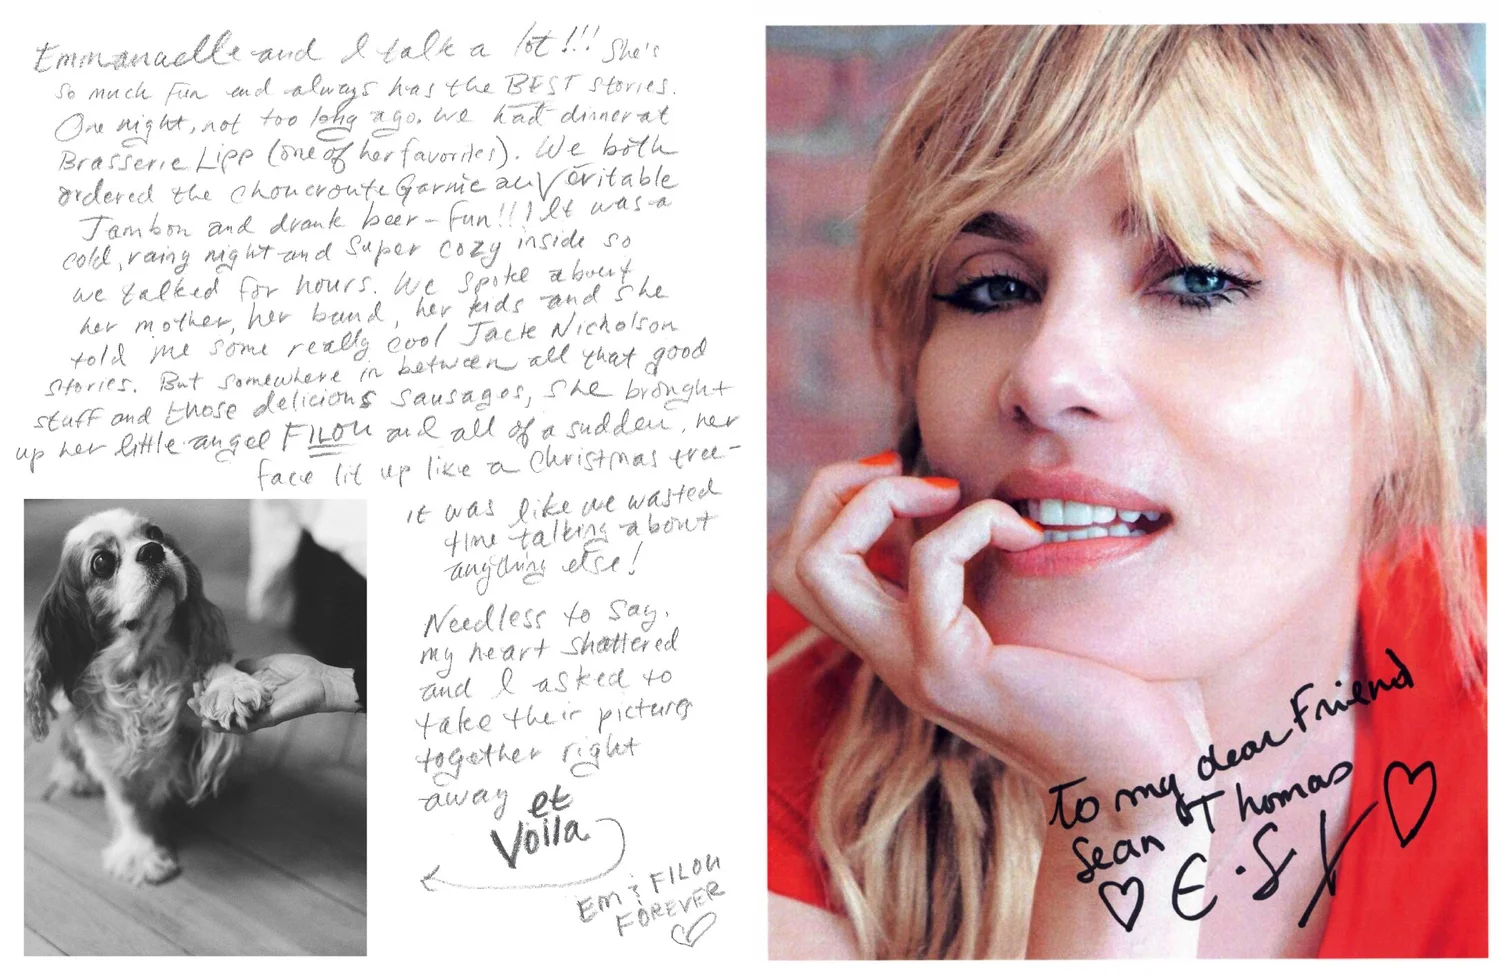 Emmanuelle and I talk a lot!!! She's
so much fun and always has the BEST stories.
One night, not too long ago, we had dinner at
Brasserie Lipp (one of her favorites). We both
ordered the choucroute Garnie au Véritable
Jambon and drank beer - fun!!! It was a
cold, rainy night and super cozy inside so
we talked for hours. We spoke about
her mother, her band, her kids and she
told me some really cool Jack Nicholson
stories. But somewhere in between all that good
stuff and those delicious sausages, she brought
up her little angel FILOU and all of a sudden, her
face lit up like a Christmas tree -
it was like we wasted
time talking about
anything else!
Needless to say,
my heart shattered
and I asked to
take their picture
together right
away et
Voila
EM & FILOU
FOREVER
to my dear Friend
Sean Thomas
E.S